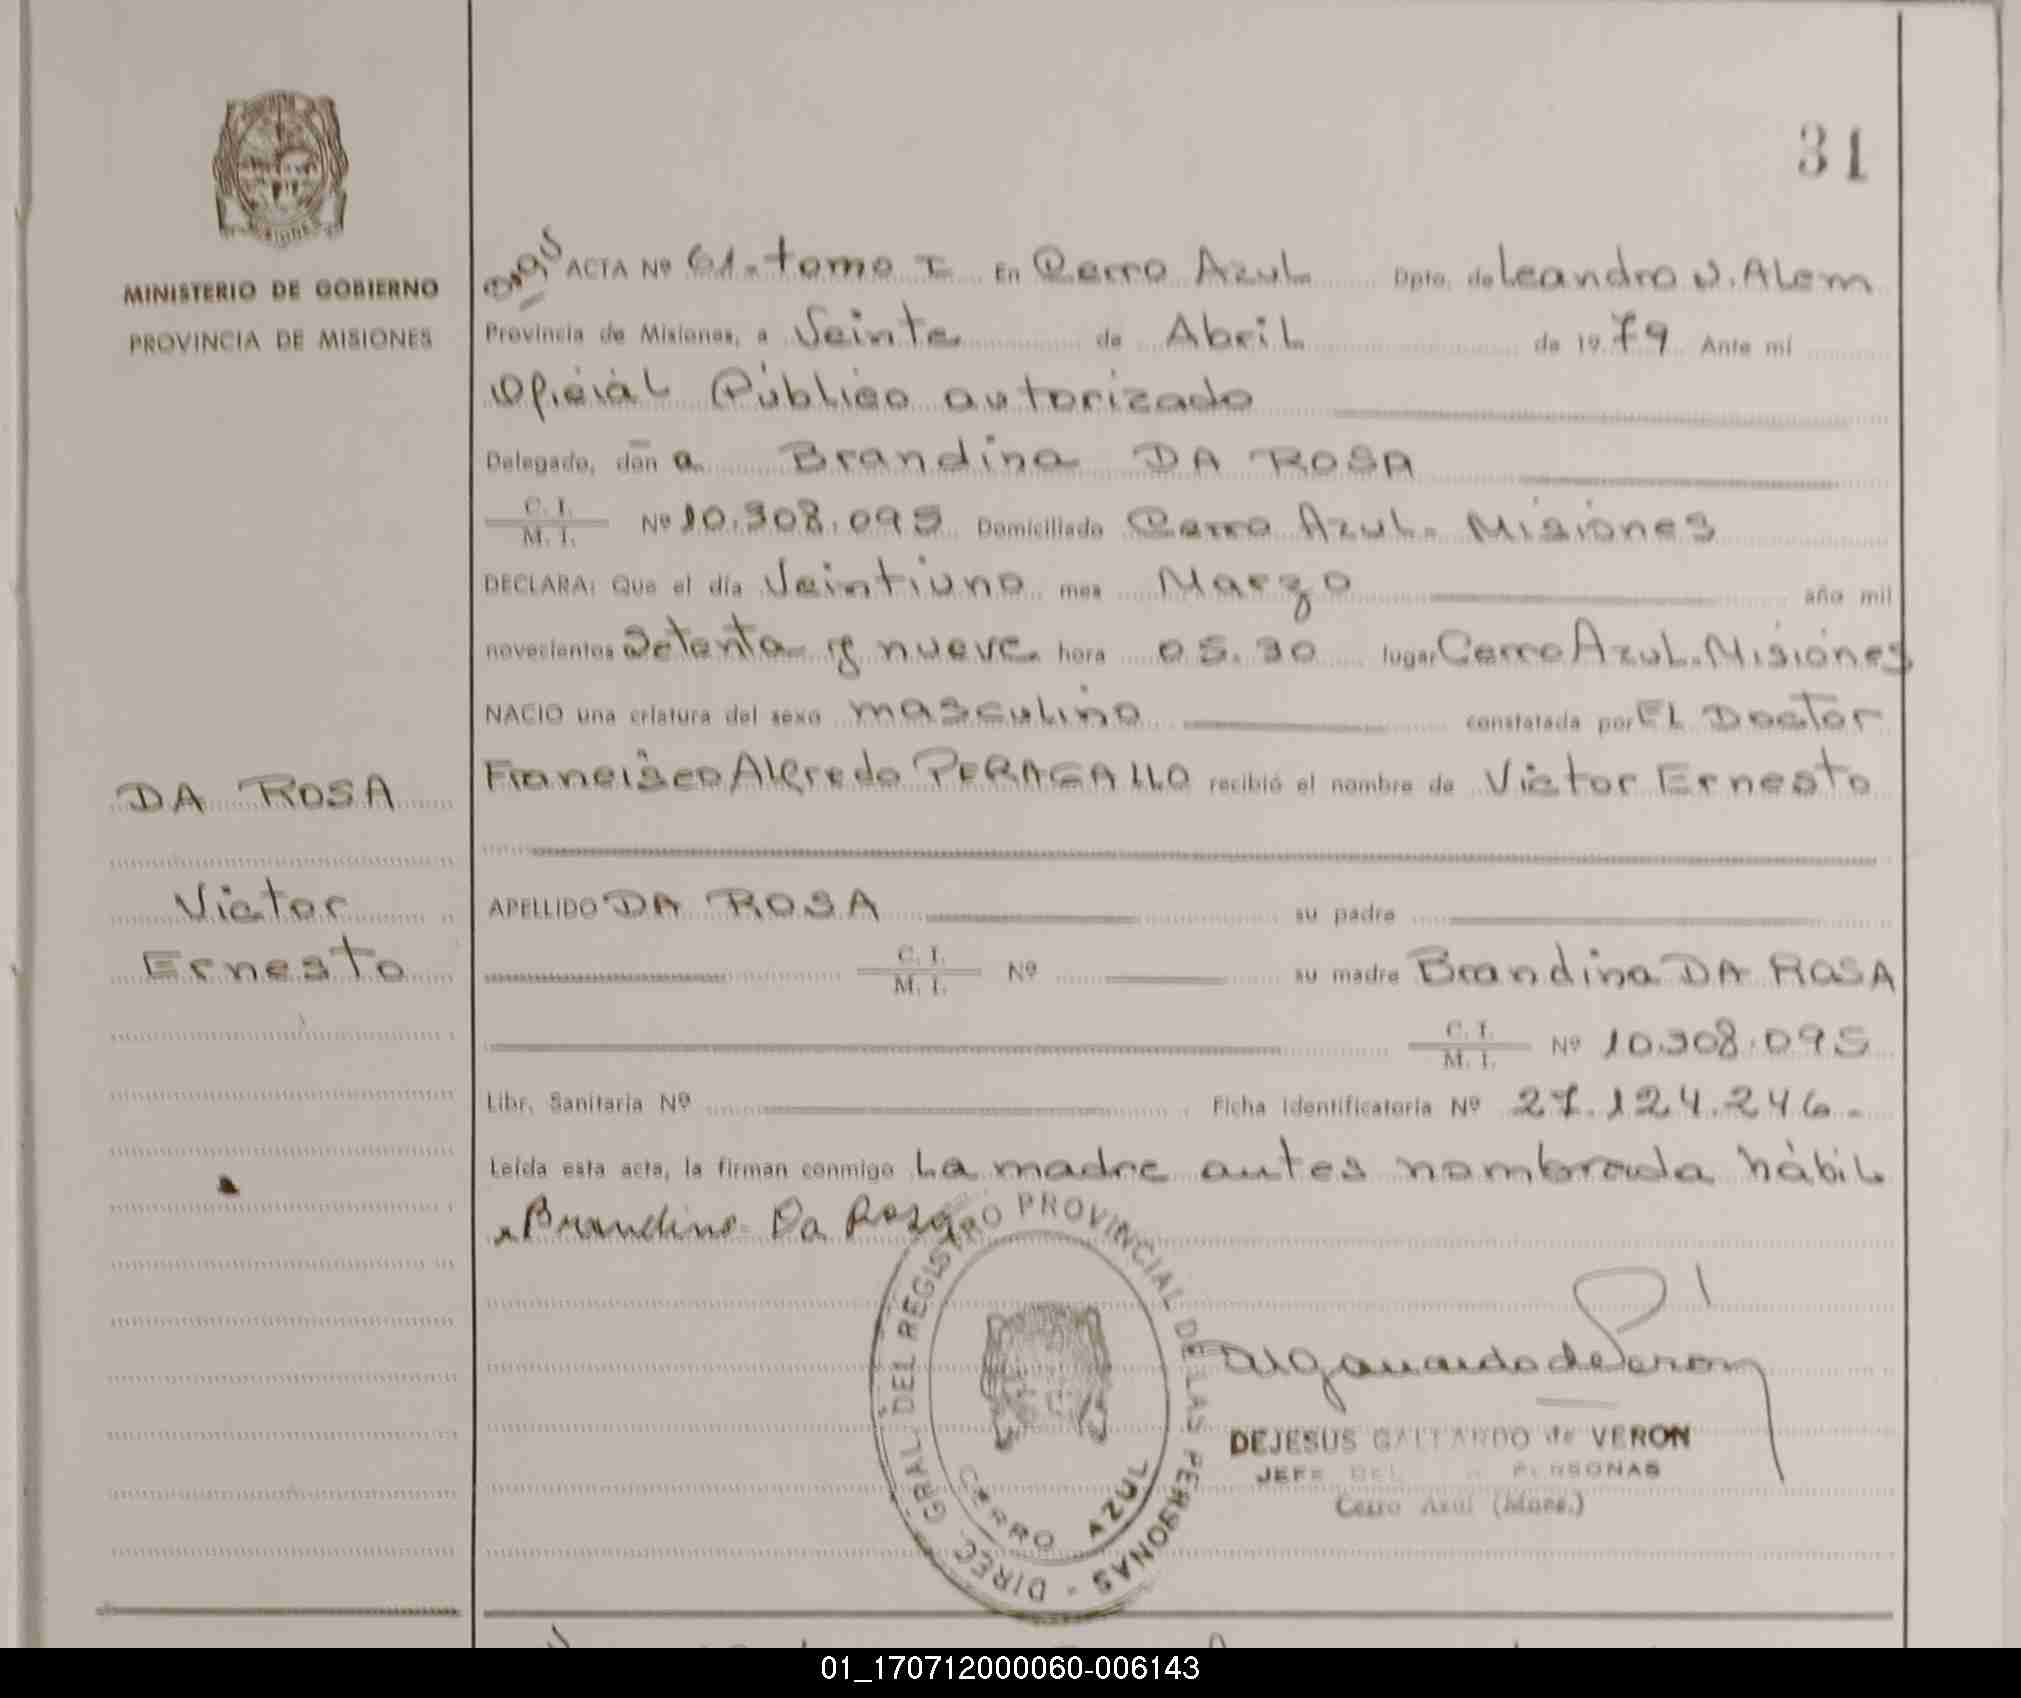 31
MINISTERIO DE GOBIERNO
PROVINCIA DE MISIONES
ACTA Nº 61. tomo I En Cerro Azul Dpto. de Leandro N. Alem
Provincia de Misiones, a Veinte de Abril de 1979 Ante mí
Oficial Público autorizado
Delegado, don a Brandina DA ROSA
C. I.
M. I. Nº 10.308.095 Domiciliado Cerro Azul. Misiones
DECLARA: Que el día Veintiuno mes Marzo año mil
novecientos Setenta y nueve hora 05.30 lugar Cerro Azul. Misiones
NACIO una criatura del sexo masculino constatada por El Doctor
Francisco Alfredo PERAGALLO recibió el nombre de Victor Ernesto
DA ROSA
Victor
Ernesto
APELLIDO DA ROSA su padre
C. I.
M. I. Nº su madre Brandina DA ROSA
C. I.
M. I. Nº 10.308.095
Libr. Sanitaria Nº Ficha identificatoria Nº 27.124.246.
Leída esta acta, la firman conmigo La madre antes nombrada hábil
Brandina Da Rosa
DIREC. GRAL. DEL REGISTRO PROVINCIAL DE LAS PERSONAS -
CERRO AZUL
DEJESUS GALLARDO de VERON
JEFE DEL PERSONAS
Cerro Azul (Mnes.)
01_170712000060-006143